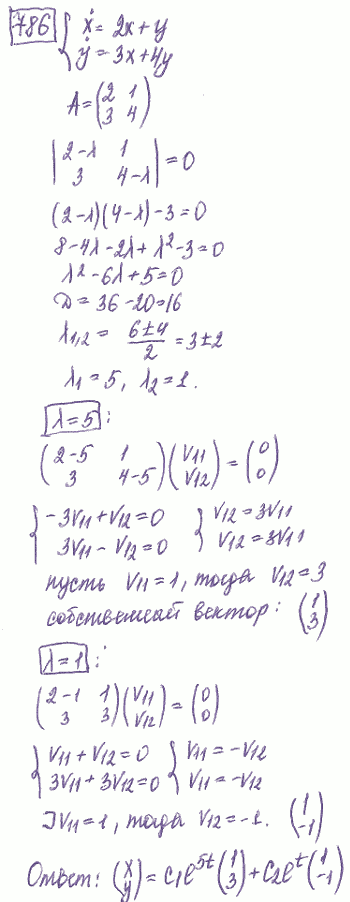 786 { ẋ = 2x + y
ẏ = 3x + 4y
A = (2 1
3 4)
|2-λ 1
3 4-λ| = 0
(2-λ)(4-λ) - 3 = 0
8 - 4λ - 2λ + λ² - 3 = 0
λ² - 6λ + 5 = 0
D = 36 - 20 = 16
λ1,2 = (6 ± 4)/2 = 3 ± 2
λ1 = 5, λ2 = 1.
λ = 5 :
(2-5 1
3 4-5) (V11
V12) = (0
0)
{ -3V11 + V12 = 0 { V12 = 3V11
3V11 - V12 = 0 V12 = 3V11
пусть V11 = 1, тогда V12 = 3
собственный вектор: (1
3)
λ = 1 :
(2-1 1
3 3) (V11
V12) = (0
0)
{ V11 + V12 = 0 { V11 = -V12
3V11 + 3V12 = 0 V11 = -V12
] V11 = 1, тогда V12 = -1. (1
-1)
Ответ: (x
y) = C1e^5t (1
3) + C2e^t (1
-1)